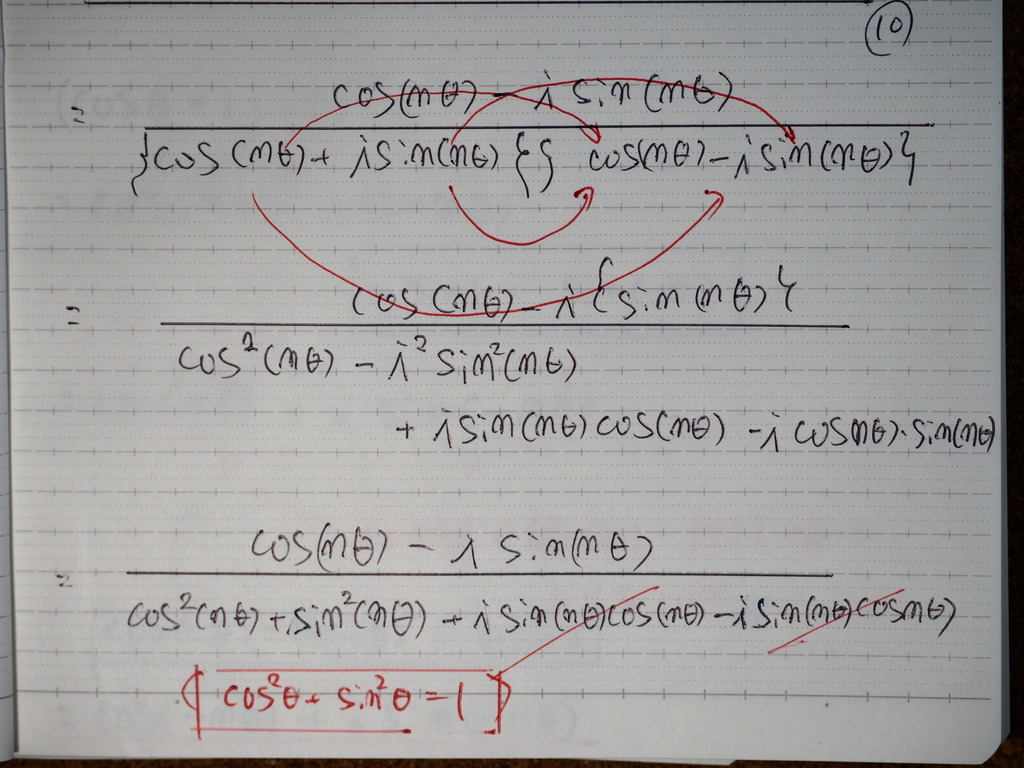 (10)
= cos(nθ) - i sin(nθ)
{cos(nθ) + i sin(nθ)}{cos(nθ) - i sin(nθ)}
= cos(nθ) - i{sin(nθ)}
cos²(nθ) - i² sin²(nθ)
+ i sin(nθ) cos(nθ) - i cos(nθ)·sin(nθ)
= cos(nθ) - i sin(nθ)
cos²(nθ) + sin²(nθ) + i sin(nθ)cos(nθ) - i sin(nθ)cosnθ)
[cos²θ + sin²θ = 1]